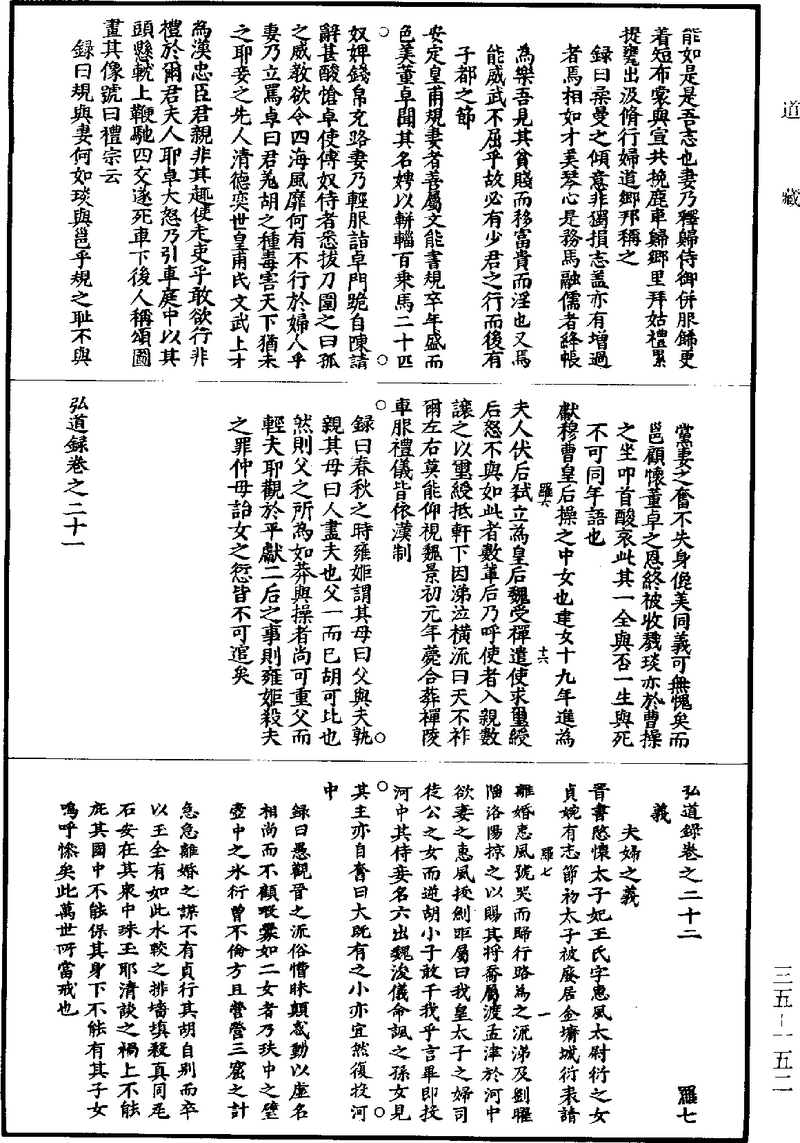 道藏
能如是是吾志也妻乃釋歸侍御併服飾更
着短布裳與宣共挽鹿車歸鄉里拜姑禮累
提甕出汲脩行婦道鄉邦稱之
錄曰柔曼之傾意非獨損志蓋亦有增過
者馬相如才美琴心是務馬融儒者絳帳
為樂吾見其貧賤而移富貴而淫也又焉
能威武不屈乎故必有少君之行而後有
子都之節
安定皇甫規妻者善屬文能書規卒年盛而
色美董卓聞其名娉以軿輜百乘馬二十匹
奴婢錢帛充路妻乃輕服詣卓門跪自陳請
辭甚酸愴卓使傅奴侍者悉拔刀圍之曰孤
之威教欲令四海風靡何有不行於婦人乎
妻乃立罵卓曰君羌胡之種毒害天下猶未
之耶妾之先人清德奕世皇甫氏文武上才
為漢忠臣君親非其趣使走吏乎敢欲行非
禮於爾君夫人耶卓大怒乃引車庭中以其
頭懸軶上鞭馳四交遂死車下後人稱頌圖
畫其像號曰禮宗云
錄曰規與妻何如琰與邕乎規之耻不與
黨妻之奮不失身儗美同義可無愧矣而
邕顧懷董卓之恩終被收戮琰亦於曹操
之坐叩首酸哀此其一全與否一生與死
不可同年語也
獻穆曹皇后操之中女也建安十九年進為
夫人伏后弒立為皇后魏受禪遣使求璽綬
后怒不與如此者數輩后乃呼使者入親數
讓之以璽綬抵軒下因涕泣橫流曰天不祚
爾左右莫能仰視魏景初元年薨合葬禪陵
車服禮儀皆依漢制
錄曰春秋之時雍姬謂其母曰父與夫孰
親其母曰人盡夫也父一而已胡可比也
然則父之所為如莽與操者尚可重父而
輕夫耶觀於平獻二后之事則雍姬殺夫
之罪仲母詒女之愆皆不可逭矣
弘道錄卷之二十一
羅六
十六
弘道錄卷之二十二
羅七
義
夫婦之義
晉書愍懷太子妃王氏字惠風太尉衍之女
貞婉有志節初太子被廢居金墉城衍表請
離婚惠風號哭而歸行路為之流涕及劉曜
陷洛陽掠之以賜其將喬屬渡孟津於河中
欲妻之惠風拔劍距屬曰我皇太子之婦司
徒公之女而逆胡小子敢干我乎言畢即投
河中其侍妾名六出魏浚儀令諷之孫女見
其主亦自奮曰大既有之小亦宜然復投河
中
錄曰愚觀晉之流俗懵眛顛惑動以虛名
相尚而不顧嘅爨如二女者乃玦中之璧
壺中之氷衍曾不倫方且營營三窟之計
急急離婚之謀不有貞行其胡自别而卒
以玉全有如此水較之排墻填殺真同瓦
石安在其衆中珠玉耶清談之禍上不能
庇其國中不能保其身下不能有其子女
嗚呼慘矣此萬世所當戒也
羅七
一
三五-一五二